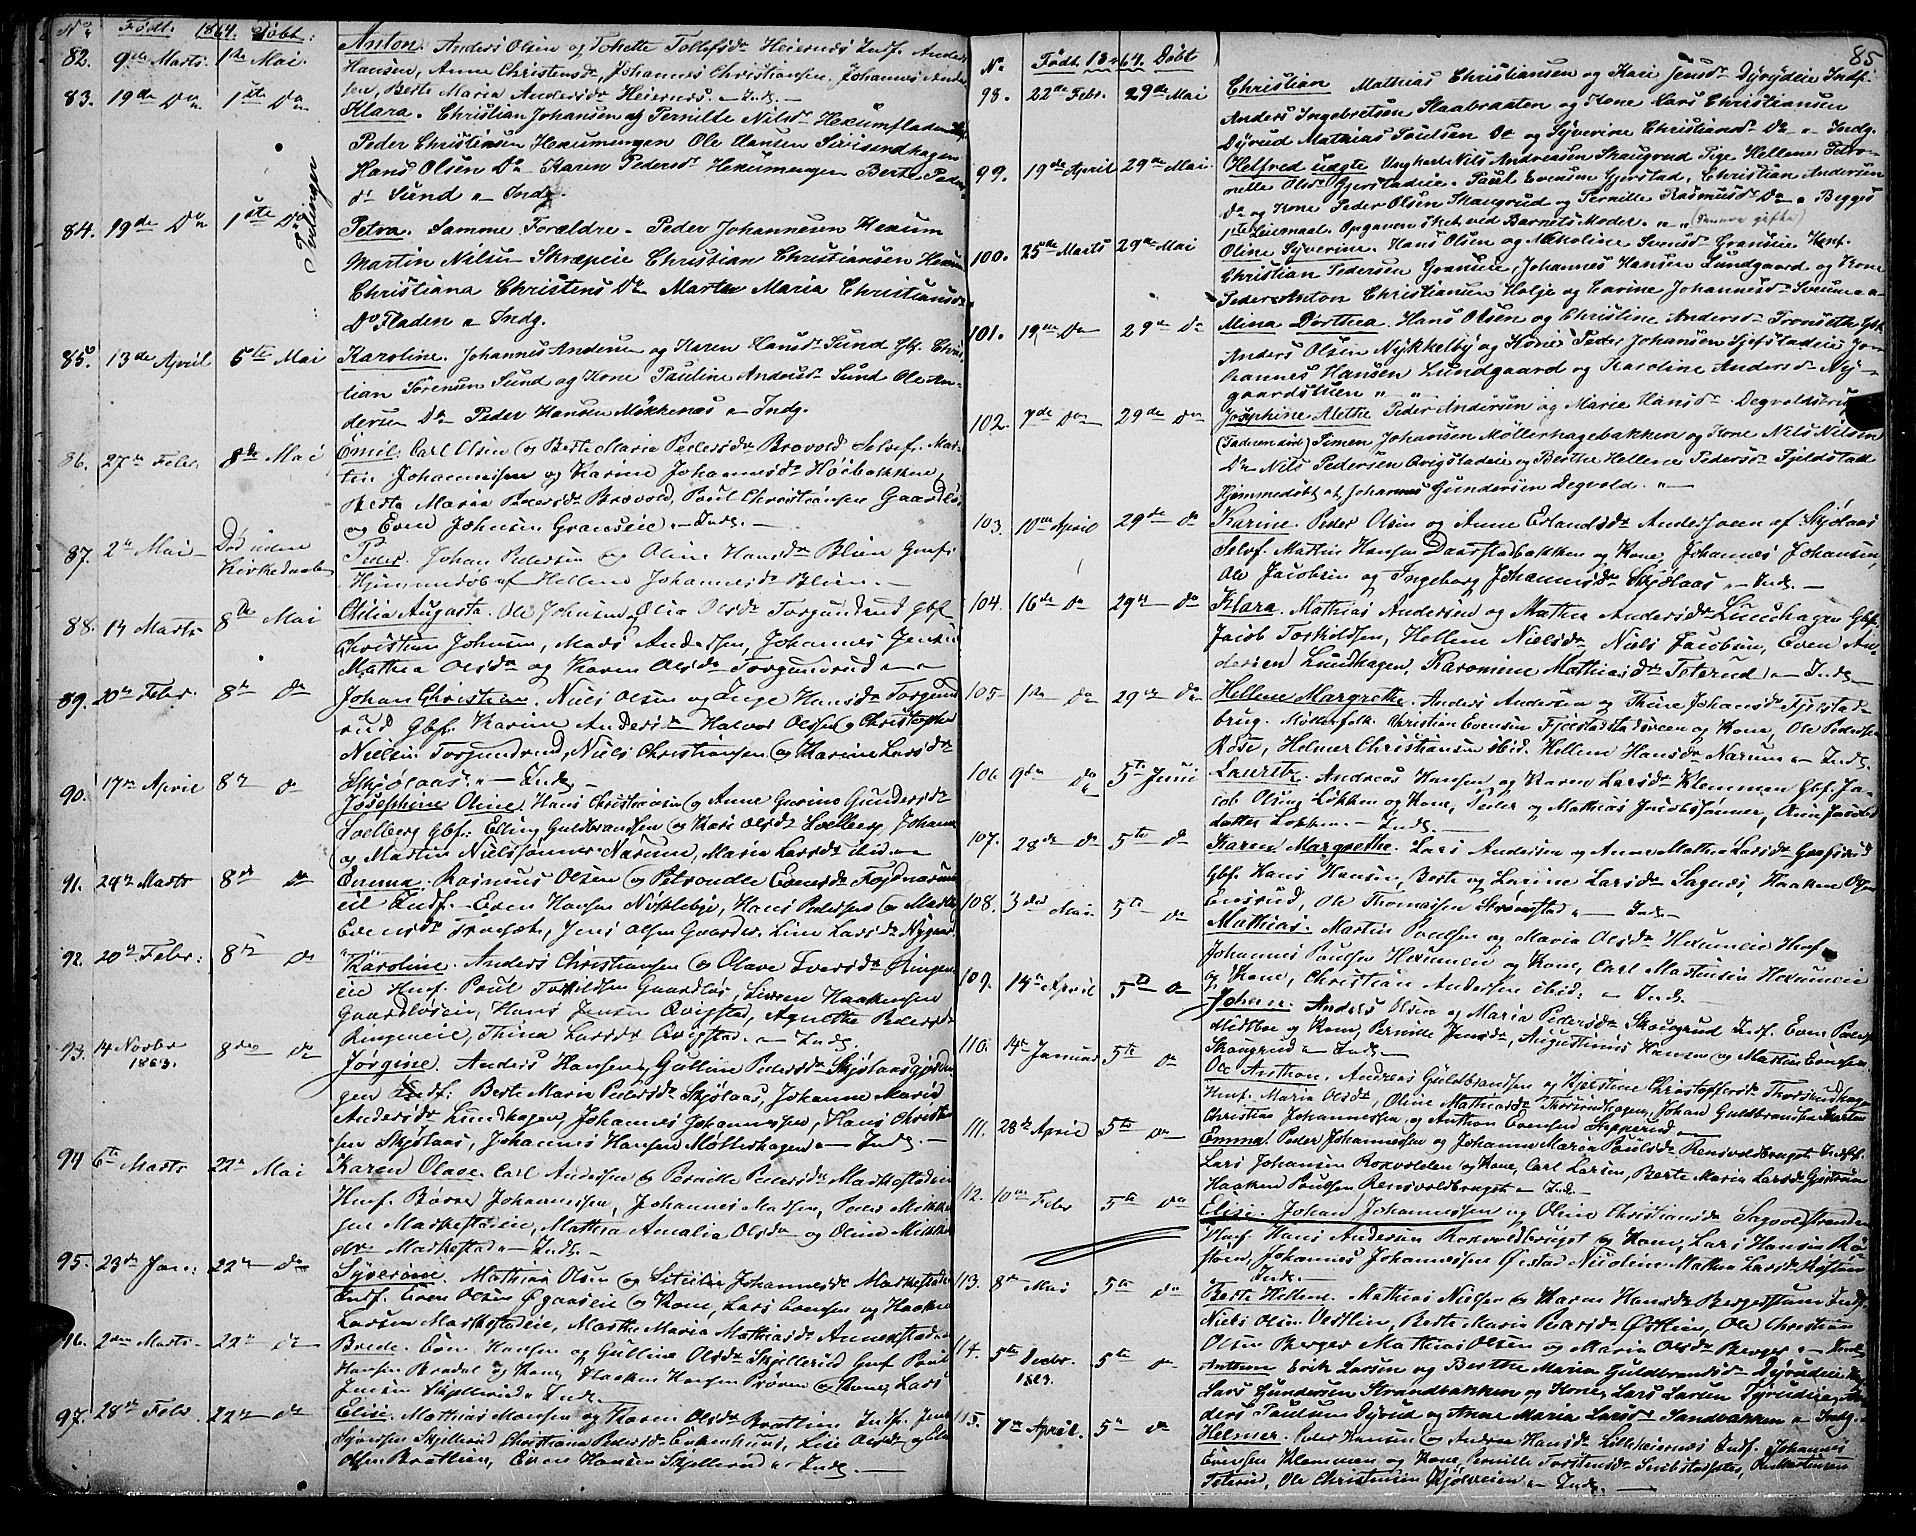 No. Født. 1864. Døbt:
82. 9de Marts 1ste Mai. Anton. Anders Olsen og Tohette Tollefsdr Heiernæs Indf. Anders
Hansen, Anne Christensdr, Johannes Christiansen. Johannes Ander-
sen, Berte Maria Andersdr Heiernæs. - Indg. -
83. 19de Do 1ste Do Klara. Christian Johansen og Pernille Nilsdr Hexumfladen
Peder Christiansen Hexumengen Ole Hansen
Hans Olsen Do Karen Pedersdr Hexumengen Berte Peders-
dr Sund - Indg.
Tvillinger
84. 19de Do 1ste Do Petra. Samme Forældre - Peder Johannesen Hexum
Martin Nilsen Skræpeie Christian Christiansen Hexum
Christiana Christens Dr Marte Maria Christiansdr
Do Fladen - Indg.
85. 13de April 5te Mai Karoline. Johannes Andersen og Karen Hansdr Sund Chris-
tian Sørensen Sund og Kone Pauline Andersdr Sund Ole An-
dersen Do Peder Hansen Møkkenæs - Indg.
86. 27de Febr. 8de Mai Emil. Carl Olsen og Berte Maria Pedersdr Brovold Selvef. Mar-
tin Johannesen og Karine Johannesdr Høibakken,
Berte Maria Pedersdr Brovold, Poul Christiansen Gaardløs
og Even Johnsen Granseie - Indg. -
87. 2de Mai - Død uden Kirkedaab Peder. Johan Pedersen og Oline Hansdr Blien
Hjemmedøb af Hellene Johannesdr Blien. -
88. 14 Marts 8de Mai Olia Augusta. Ole Johnsen og Olia Olsdr Torgunrud Gbf.
Christian Johnsen, Mads Andersen, Johannes Jensen
Mathea Olsdr og Karen Olsdr Torgunrud -
89. 20de Febr. 8de do Johan Christian. Niels Olsen og Inge Hansdr Torgun-
rud Gbf. Karine Andersdr Halvor Olsen og Christopher
Nielsen Torgunrud, Niels Christiansen og Karine Larsdr
Skjølaas. - Indg -
90. 17de April 8de do Josephine Oline. Hans Christiansen og Anne Gurine Gundersdr
Solberg Gbf: Elling Guldbrandsen og Kari Olsdr Solberg, Johannes
og Martin Nielssønner Narum, Maria Larsdr ibid -
91. 24de Marts 8de do Emma. Rasmus Olsen og Petronelle Evensdr
eie Indf. Even Hansen Nykkelbye, Hans Pedersen og Marthe
Evensdr Tronset, Jens Olsen Gaarder. Line Larsdr
92. 20de Febr: 8de do Karoline. Anders Christiansen og Olave Iversdr Ringen-
eie Huf. Poul Torkildsen Gaardløs, Haakensen
Gaardløseie, Hans Jensen Qvigstad, Agnethe Pedersdr
Ringeneie, Thina Larsdr Qvigstad. - Indg. -
93. 14 Novbr 1863. 8de do Jørgine. Anders Hansen, Gulline Pedersdr
gen Indf. Berte Marie Pedersdr Skjølaas, Johanne Maria
Andersdr Lundhagen, Johannes Johannessen, Hans Christian-
sen Skjølaas, Johannes Hansen Møllerhagen - Indg. -
94 6te Marts 22de Mai Karen Olave. Carl Andersen og Pernille Pedersdr Markestadeie
Huf. Børre Johannessen, Johannes Madsen, Peder Mikkel-
sen Markestadeie, Mathea Amalia Olsdr og Oline Mikkels-
dr Markestad - Indg -
95. 23de Jan: 22de do Syverine. Mathias Olsen og Sicilie Johannesdr Markestadeie
Indf. Even Olsen Øgaaseie og Kone, Lars Evensen og Haaken
Larsen Markestadeie, Marthe Maria Mathiasdr
96. 2den Marts 22de do Brede. Even Hansen og Gulline Olsdr Skjellerud Huf. Poul
Hansen og Kone, Haaken Hansen Prøven og Kone, Lars
Jensen Skjellerud - Indg.
97. 28de Febr. 22de do Elise. Mathias Hansen og Karen Olsdr Bratlien Indf. Jens
Syversen Skjellerud Christiana Pedersdr Lise Olsdr og Ole
Olsen Bratlien, Even Hansen Skjellerud - Indg. -
85
No. Født 1864. Døbt
98. 22de Febr. 29de Mai Christian Mathias Christiansen og Kari Jensdr Dyrudeie Indf.
Anders Ingebretsen Slaabraaten og Kone Lars Christiansen
Dyrud Mathias Paulsen Do og Syverine Christiansdr Do - Indg.
99. 19de April 29de Mai Helfred uægte Ungkarl Nils Andreasen Skaugrud Pige Hellene Petro-
nelle Olsdr Gjerstadeie. Paul Evensen Gjerstad, Christian Andersen
Do og Kone Peder Olsen Skaugrud og Pernille Rasmusdr Do - Begges
1ste Leiermaal. Opgaven sket ved Barnets Moder. - (Senere gifte)
100. 25de Marts 29de Mai Oline Syverine. Hans Olsen og Nikoline Svensdr Granseie Huf.
Christian Pedersen Granseie, Johannes Hansen Lundgaard og Kone
Peder Anton Christiansen Holje og Earine Johannesdr
101. 19de Do 29de Do Mina Dorthea. Hans Olsen og Christine Andersdr Tronseth
Anders Olsen Nykkelby og Kone Peder Johansen Gjefstadeie Jo-
hannes Hansen Lundgaard og Karoline Andersdr Ny-
gaardstuen
102. 7de Do 29de Do Josephine Alethe Peder Andersen og Marie Hansdr Degvoldsbrug
Simen Johansen Møllerhagebakken og Kone Nils Nilsen
Do Nils Pedersen Qvigstadeie og Berthe Hellene Pedersdr Fjeldstad
Hjemmedøbt af Johannes Gundersen Degvold. -
103. 10de April 29de do Karine. Peder Olsen og Anne Erlandsdr Andersveen af Skjølaas
Selvf. Mathis Hansen Daarstadbakken og Kone, Johannes Johansen,
Ole Jacobsen og Ingeborg Johannesdr Skjølaas - Indg -
104. 16de do 29de do Klara. Mathias Andersen og Mathea Andersdr Lundhagen Gbf.
Jacob Torkildsen, Hellene Nielsdr Niels Jacobsen, Even An-
dersen Lundhagen, Karomine Mathiasdr Teterud - Indg -
105 1ste do 29de do Hellene Margrethe. Anders Andersen og Thrine Johansdr Fjelstad-
brug. Møllerfolk. Christian Evensen Fjelstad og Kone, Ole Pedersen
Røse, Helmer Christiansen ibid. Hellene Hansdr Narum - Indg.
106 9de do 5te Juni Lauritz. Andreas Hansen og Karen Larsdr Klemmen Gbf. Ja-
cob Olsen Løkken og Kone, Peder og Mathias Jacobssønner, Anne Jacobs-
datter Løkken. - Indg -
107. 28de do 5te do Karen Margrethe. Lars Andersen og Anne Mathea Larsdr
Gbf. Hans Hansen, Berte og Larine Larsdr Sagnæs, Haaken Olsen
Ensrud, Ole Thomassen Strømstad - Indg -
108. 3die Mai 5te do Mathias. Martin Poulsen og Maria Olsdr Hexumeie Huf.
Johannes Poulsen Hexumeie og Kone, Carl Martinsen Hexumeie
og Kone, Christian Andersen ibid: - Indg -
109. 14de April 5te do Johan. Anders Olsen og Maria Pedersdr Skougrud Indf. Even Peders-
Midtbøe og Kone, Pernille Jensdr, Augustinius Hansen og Martin Evensen
Skougrud - Indg -
110. 14de Januar 5te do Ole Anthon. Andreas Guldbrandsen og Kjerstine Christoffersdr
Huf. Maria Olsdr, Oline Mathiasdr Johan Guldbrandsen
Christian Johannessen, og Anthon Evensen Tepperud -
111. 28de April 5te do Emma. Peder Johannessen og Johanne Maria Poulsdr Rensvoldbraget Indf.
Lars Johansen Roxvolden og Kone, Carl Larsen, Berte Maria Larsdr
Haaken Poulsen Rensvoldbraget - Indg -
112. 10de Febr 5te do Elise. Johan Johannessen og Oline Christiansdr Sagvoldstranden
Huf. Hans Andersen og Kone, Lars Hansen
Johannes Johannessen Nicoline Mathea Larsdr
Indg. -
113. 8de Mai 5te do Berte Hellene. Mathias Nielsen og Karen Hansdr Indf.
Niels Olsen Vestlien, Berte Maria Pedersdr Østlien, Ole Christian
Olsen Berger Mathias Olsen og Maria Olsdr Berger - Indg
114. 5te Decbr. 1863. 5te do Anthon Erik Larsen og Berthe Maria Guldbrandsdr Dyrudeie
Lars Gundersen Strandbakken og Kone, Lars Larsen Dyrudeie, An-
ders Paulsen Dyrud og Anne Maria Larsdr Sandbakken - Indg.
115. 7de April. 5te do Helmer. Peder Hansen og Andrea Hansdr Lilleheiernæs Indf. Johannes
Evensen Klemmen og Kone, Pernille Torstensdr
Teterud, Ole Christensen - Indg -